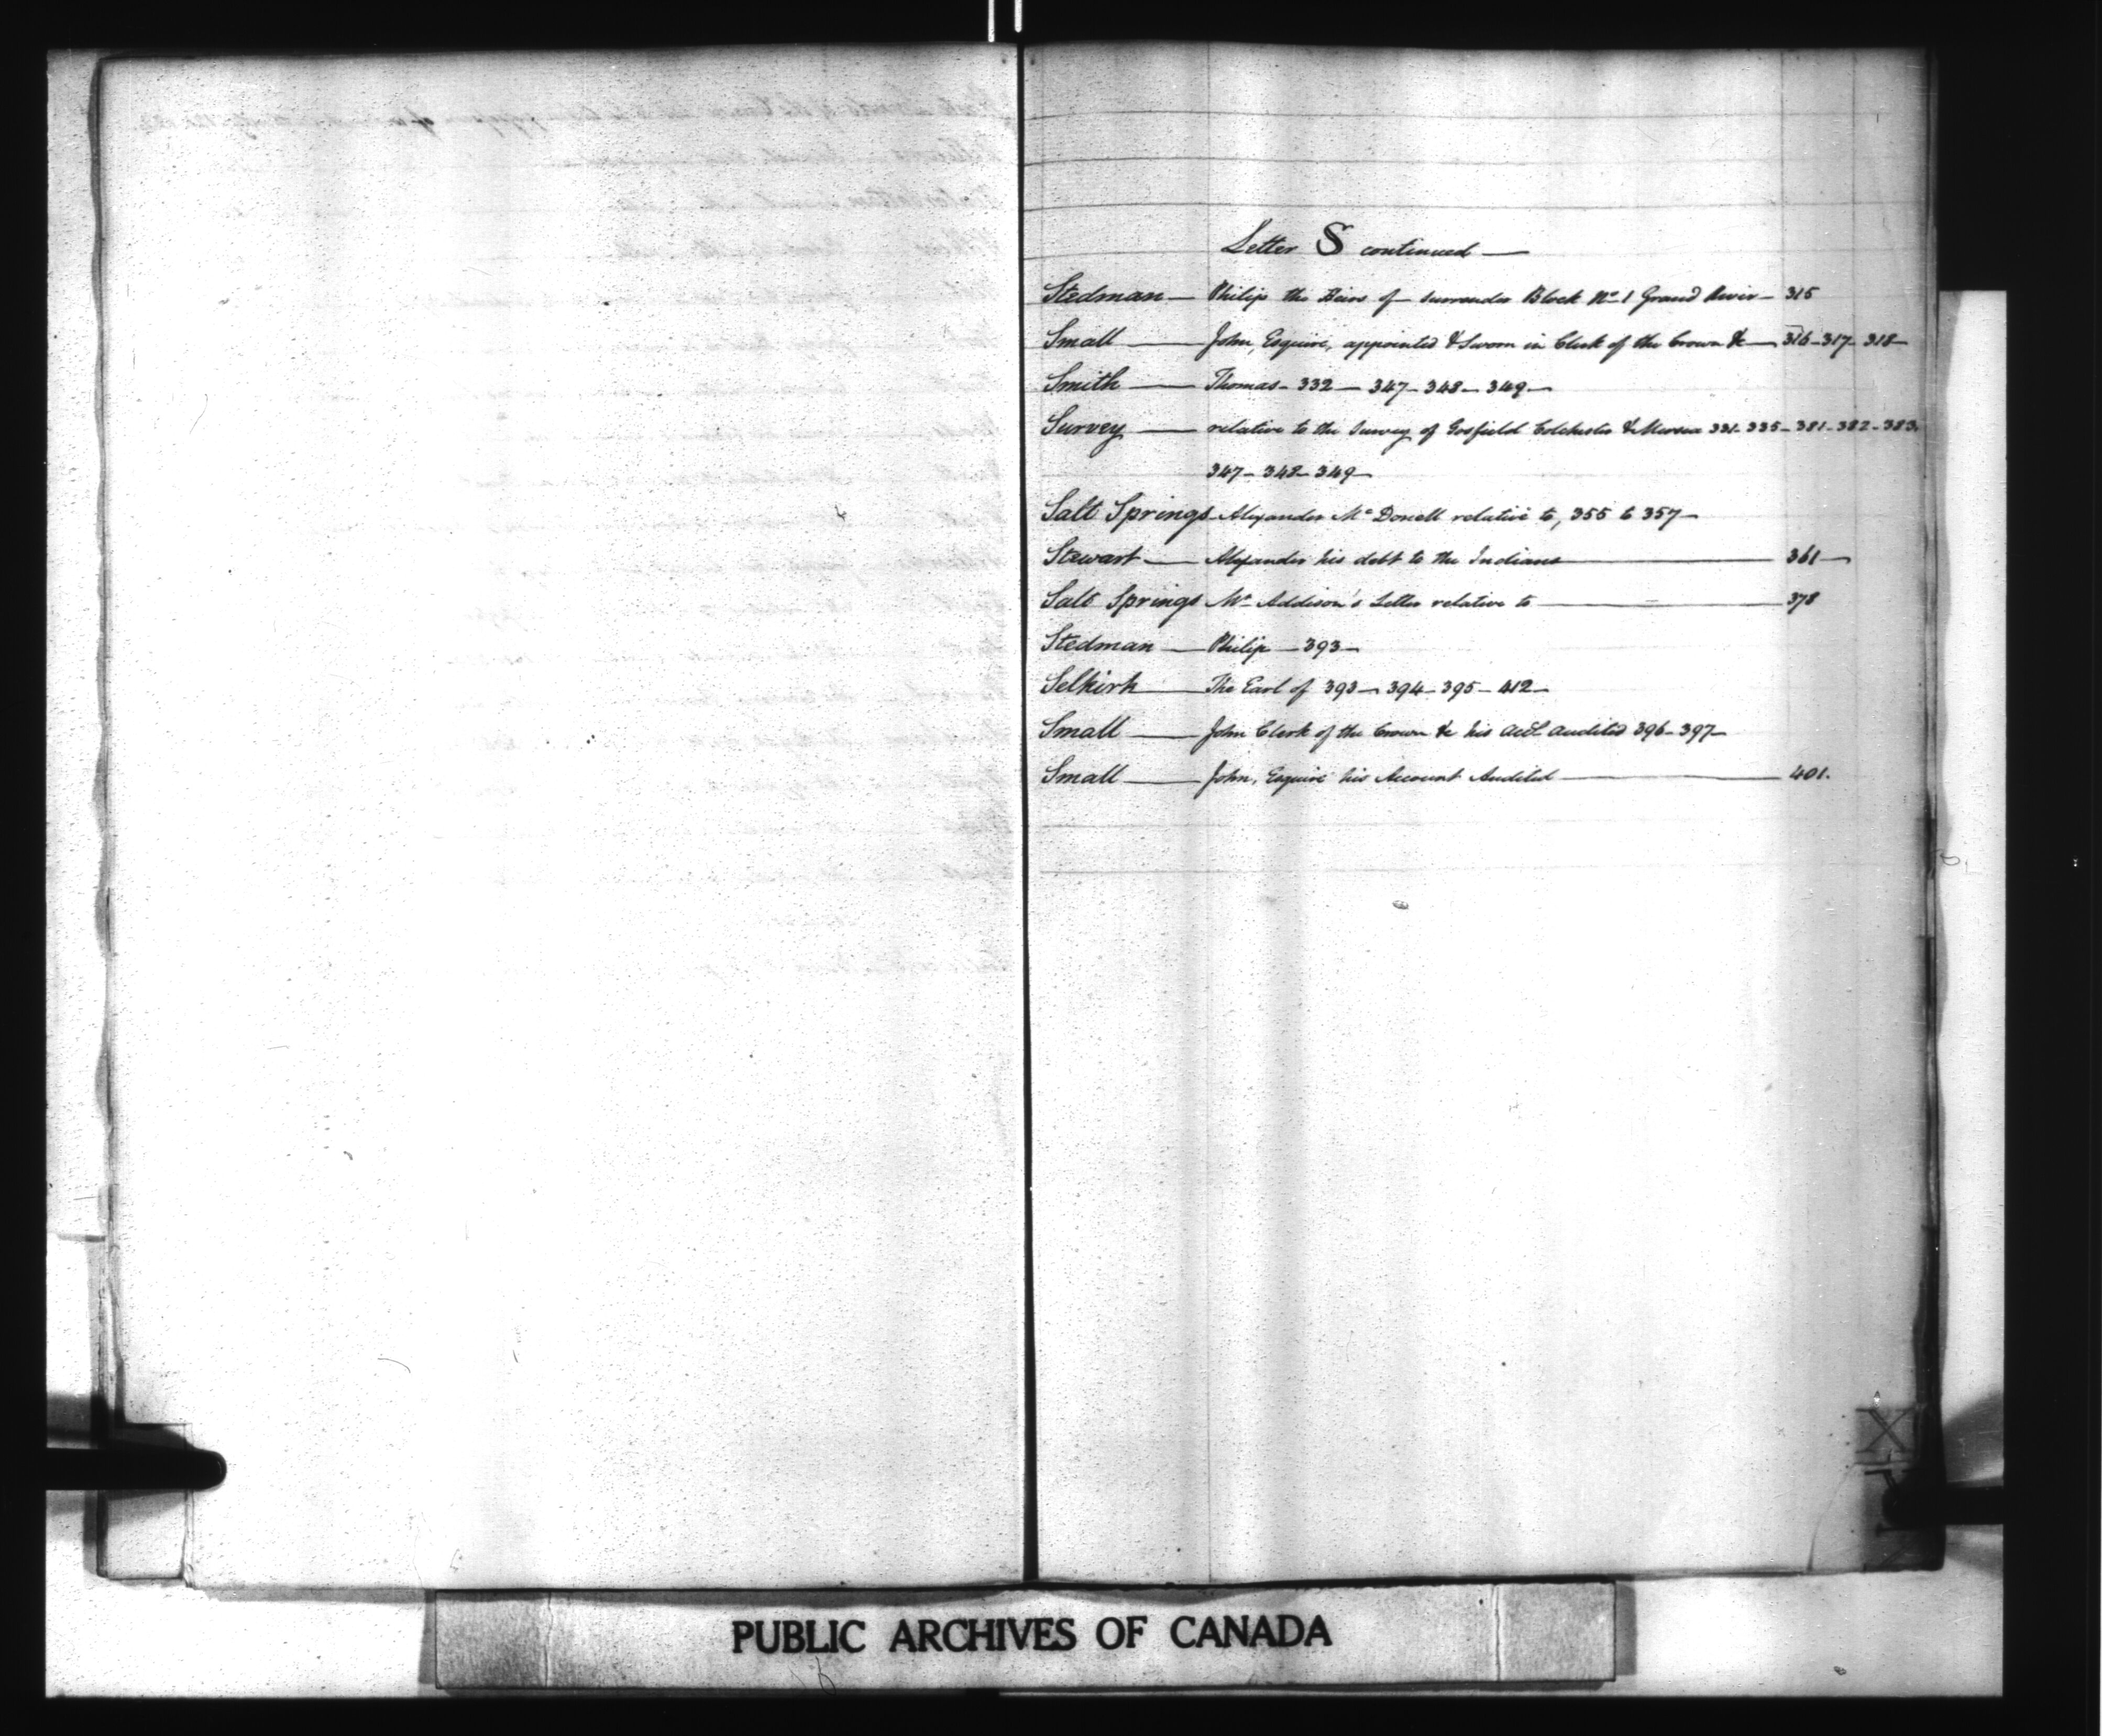 Letter S continued —
Stedman — Philip the Heirs of surrender Block No 1 Grand River — 315
Small — John, Esquire, appointed & Sworn in Clerk of the Crown &c — 316 - 317 - 318 —
Smith — Thomas - 332 — 347 - 348 - 349 —
Survey — relative to the Survey of Gosfield Colchester & Mersea 331 - 335 - 381 - 382 - 383.
347 - 348 - 349 —
Salt Springs - Alexander Mc Donell relative to, 355 to 357 —
Stewart — Alexander his debt to the Indians — 361 —
Salt Springs Mr Addison's Letter relative to — 378
Stedman — Philip — 393 —
Selkirk — The Earl of 393 — 394 - 395 - 412 —
Small — John Clerk of the Crown &c his acct audited 396 - 397 —
Small — John, Esquire his Account Audited — 401.
X
PUBLIC ARCHIVES OF CANADA